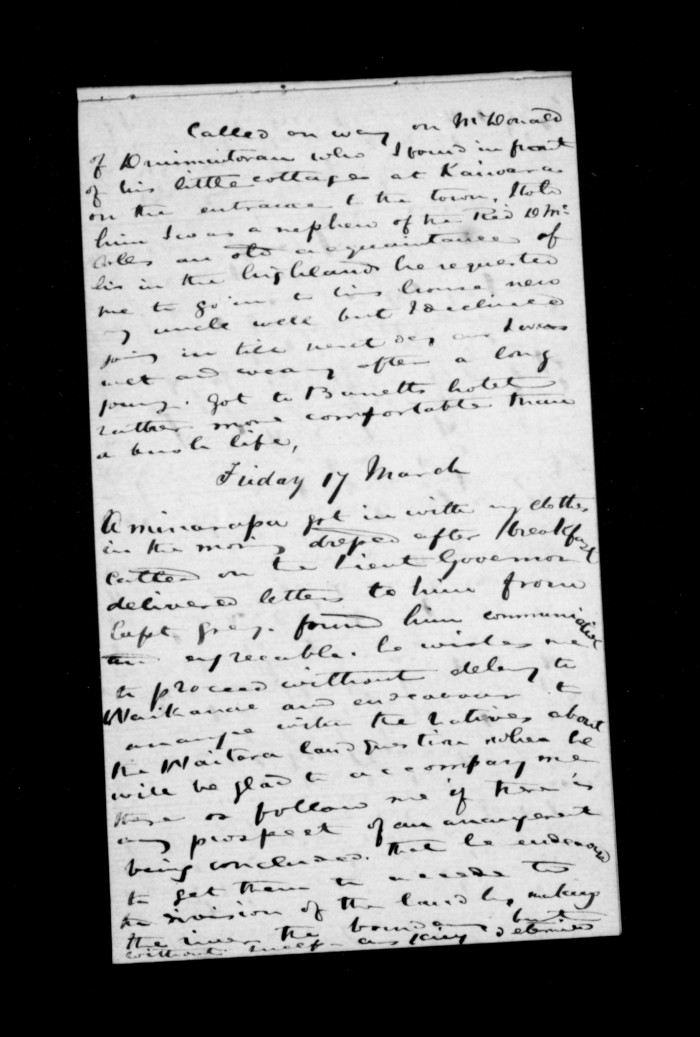 Called on way on McDonald
of Druimintoran who I found in front
of his little cottage at Kaiwara
on the entrance to the town, I told
him I was a nephew of the Red D Mc
Colls an old acquaintance of
his in the highlands he requested
me to go in to his house knew
my uncle well but I declined
going in till next day as I was
wet and weary after a long
journey. Got to Barretts hotel
rather more comfortable than
a bush life,
Friday 17 March
got in with my clothes
in the morning dressed after breakfast
called on the Lieut Governor
delivered letters to him from
Capt Grey. found him communicative
and agreeable. he wishes me
to proceed without delay to
Waikanae and endeavour to
arrange with the Natives about
the Waitara land question when he
will be glad to accompany me
there or follow me if there is
any prospect of an arrangement
being concluded. That he endeavord
to get them to accede to
the division of the land by making
the river the boundary but
without success as King determined